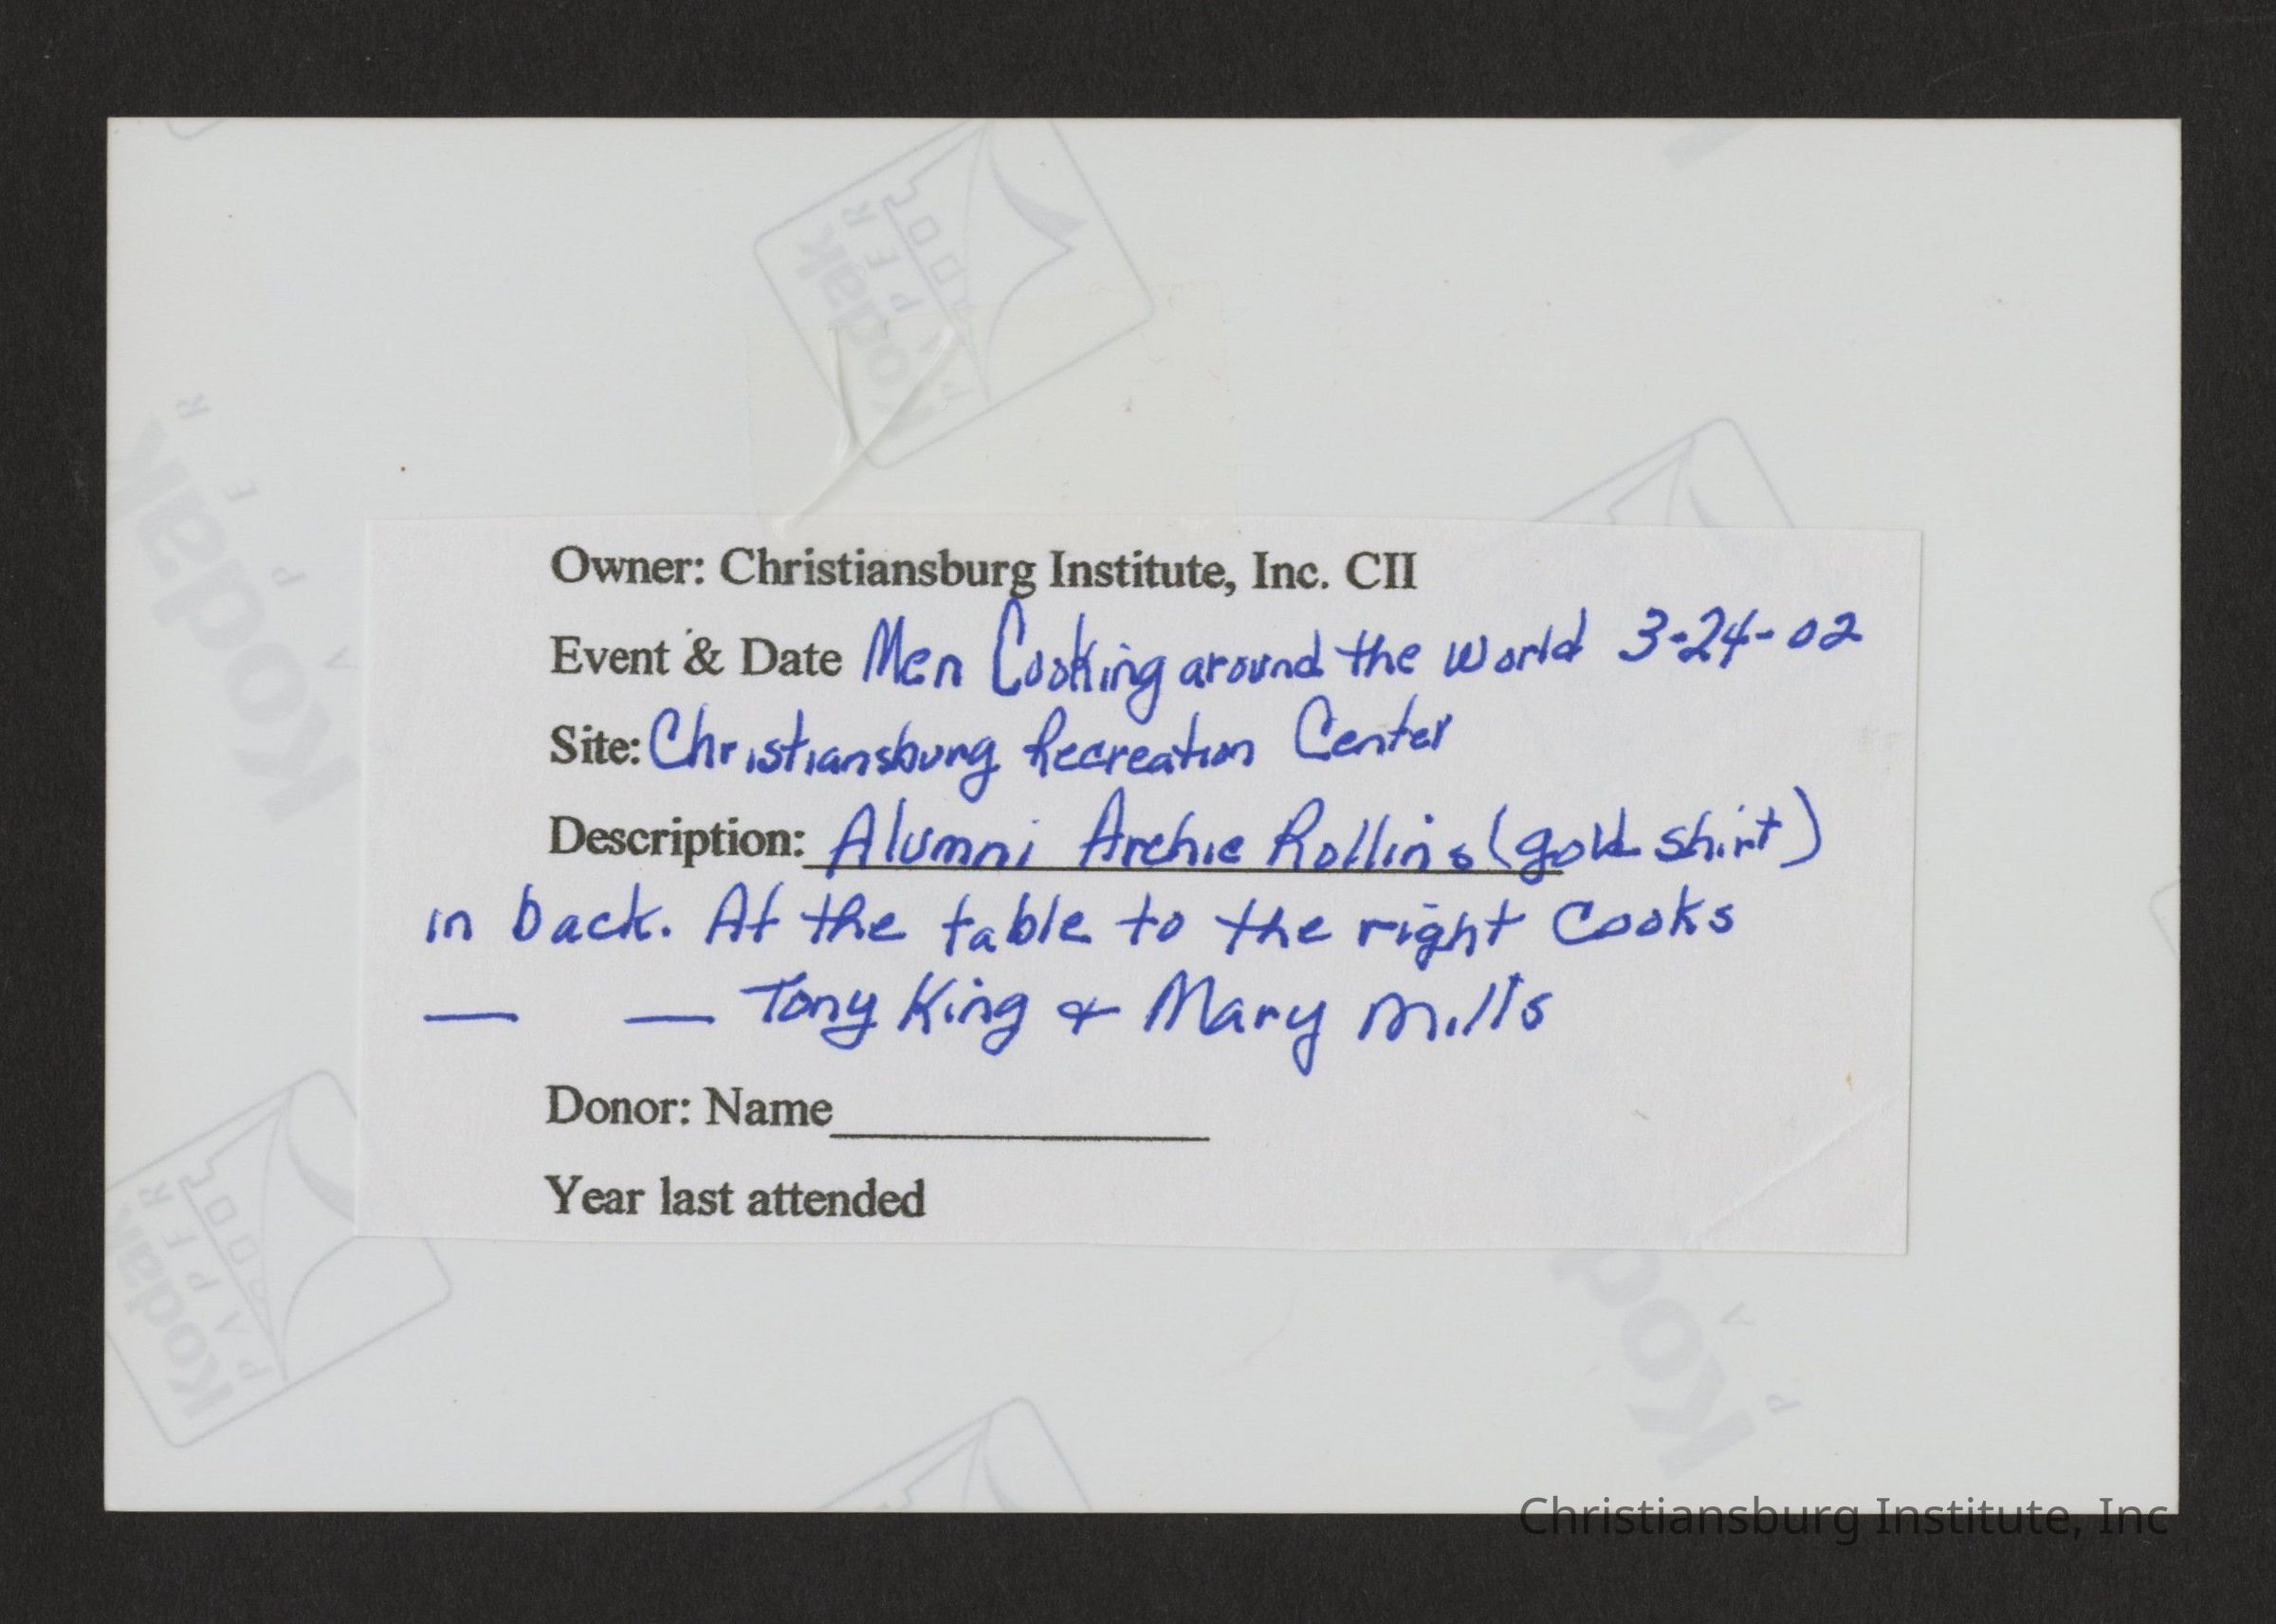 Owner: Christiansburg Institute, Inc. CII
Event & Date Men Cooking around the world 3-24-02
Site: Christiansburg Recreation Center
Description: Alumni Archie Rollins (gold shirt)
in back. At the table to the right Cooks
— — Tony King & Mary Mills
Donor: Name____________
Year last attended
Kodak
PAPER
Kodak
PAPER
Kodak
PAPER
Christiansburg Institute, Inc